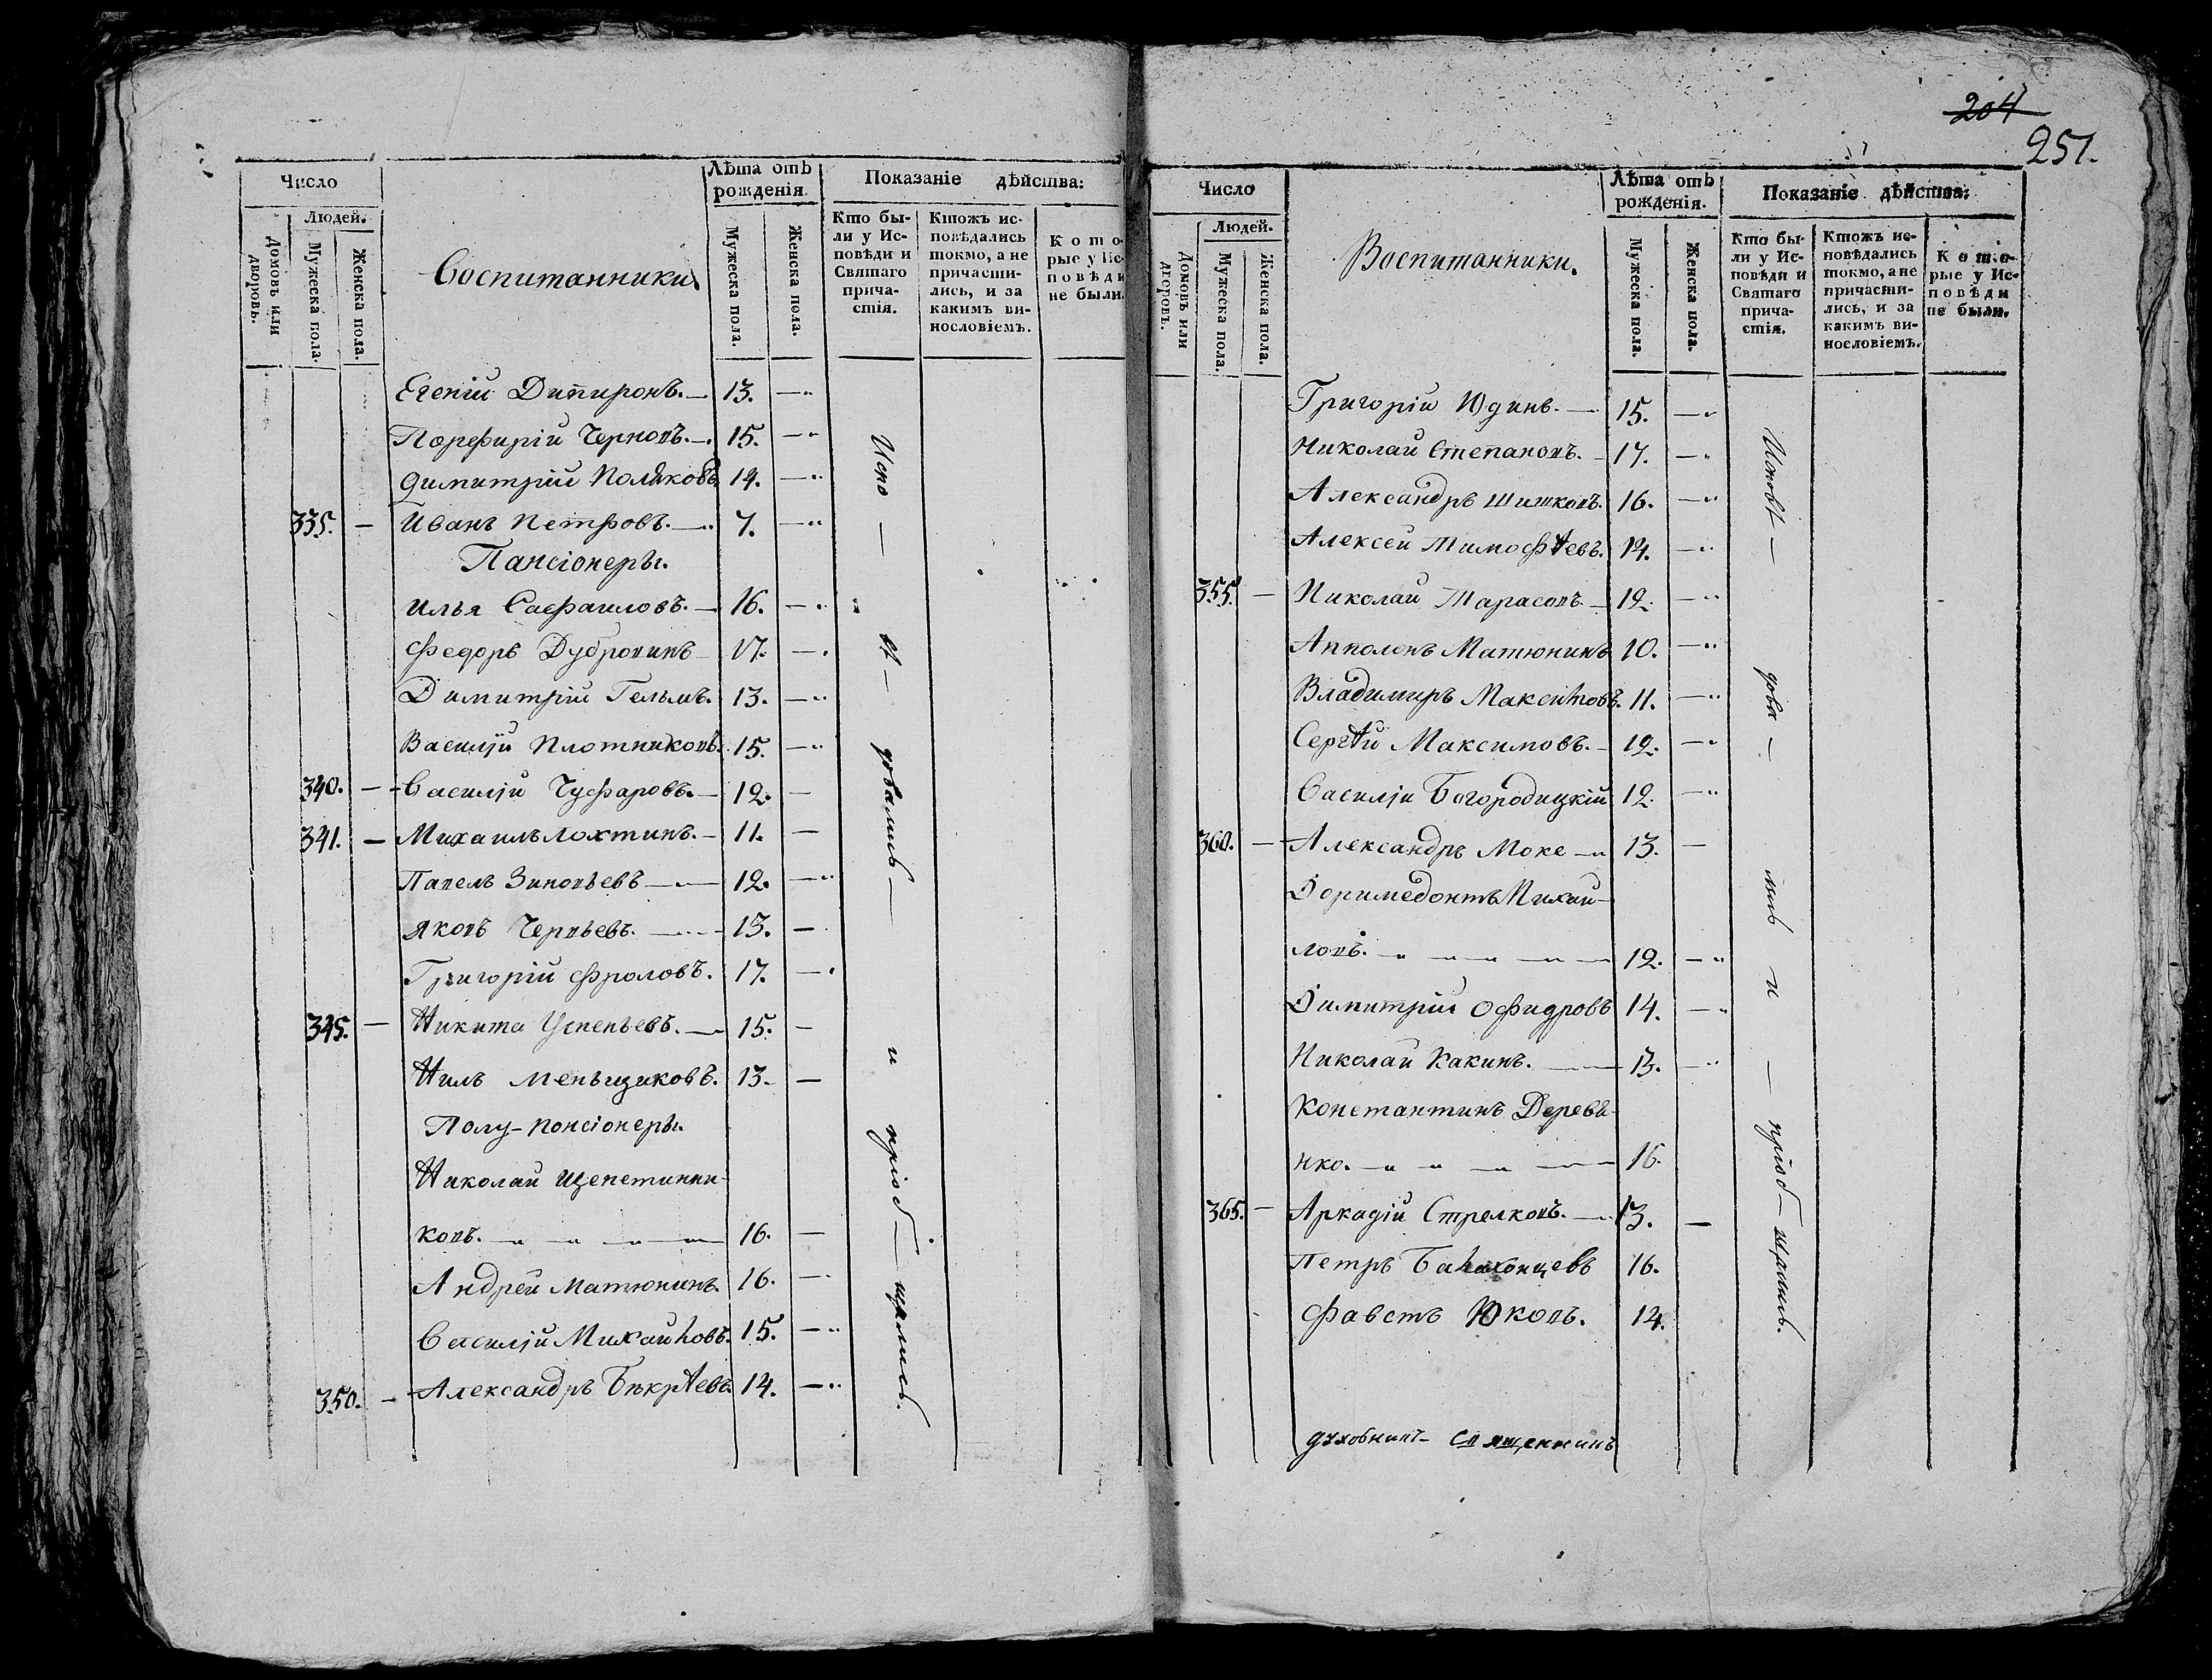 Число
Людей.
Домовъ или дворовъ.
Мужеска пола.
Женска пола.
Воспитанники
Лѣта отъ рожденія.
Мужеска пола.
Женска пола.
Показаніе дѣйства:
Кто были у Исповѣди и Святаго причастія.
Ктожъ исповѣдались токмо, а не причастились, и за какимъ винословіемъ.
Которые у Исповѣди не были.
13.
Порфирій Черновъ. 15.
Димитрій Поляковъ 14.
335. Иванъ Петровъ. 7.
Пансіонеры.
Илья 16.
Федоръ Дубровинъ 17.
Димитрій Гельмъ. 13.
Василій Плотниковъ. 15.
340. Василій Чуфаровъ. 12.
341. Михаилъ Лохтинъ. 11.
Павелъ Зиновьевъ 12.
Яковъ 13.
Григорій Фроловъ. 17.
345. Никита Успеньевъ. 15.
Нилъ Меньщиковъ. 13.
Полу-понсіонеры.
Николай Щепетинни-
ковъ. 16.
Андрей Матюнинъ. 16.
Василій Михайловъ. 15.
350. Александръ 14.
Испо вѣ довались и пріоб щались.
204
251.
Число
Людей.
Домовъ или дворовъ.
Мужеска пола.
Женска пола.
Воспитанники.
Лѣта отъ рожденія.
Мужеска пола.
Женска пола.
Показаніе дѣйства:
Кто были у Исповѣди и Святаго причастія.
Ктожъ исповѣдались токмо, а не причастились, и за какимъ винословіемъ.
Которые у Исповѣди не были.
Григорій Юдинъ. 15.
Николай Степановъ. 17.
Александръ Шишковъ. 16.
Алексей Тимофѣевъ. 14.
355. Николай Тарасовъ. 12.
Апполонъ Матюнинъ 10.
Владимиръ Максимовъ. 11.
Сергѣй Максимовъ. 12.
Василій Богородицкій 12.
360. Александръ Моке 13.
Доримедонтъ Михай-
ловъ. 12.
Димитрій 14.
Николай Какинъ. 13.
Константинъ Деревя-
нко. 16.
365. Аркадій Стрелковъ. 13.
Петръ 16.
Фавстъ Юковъ. 14.
Исповѣ дова лись и пріоб щались.
Духовникъ Священникъ